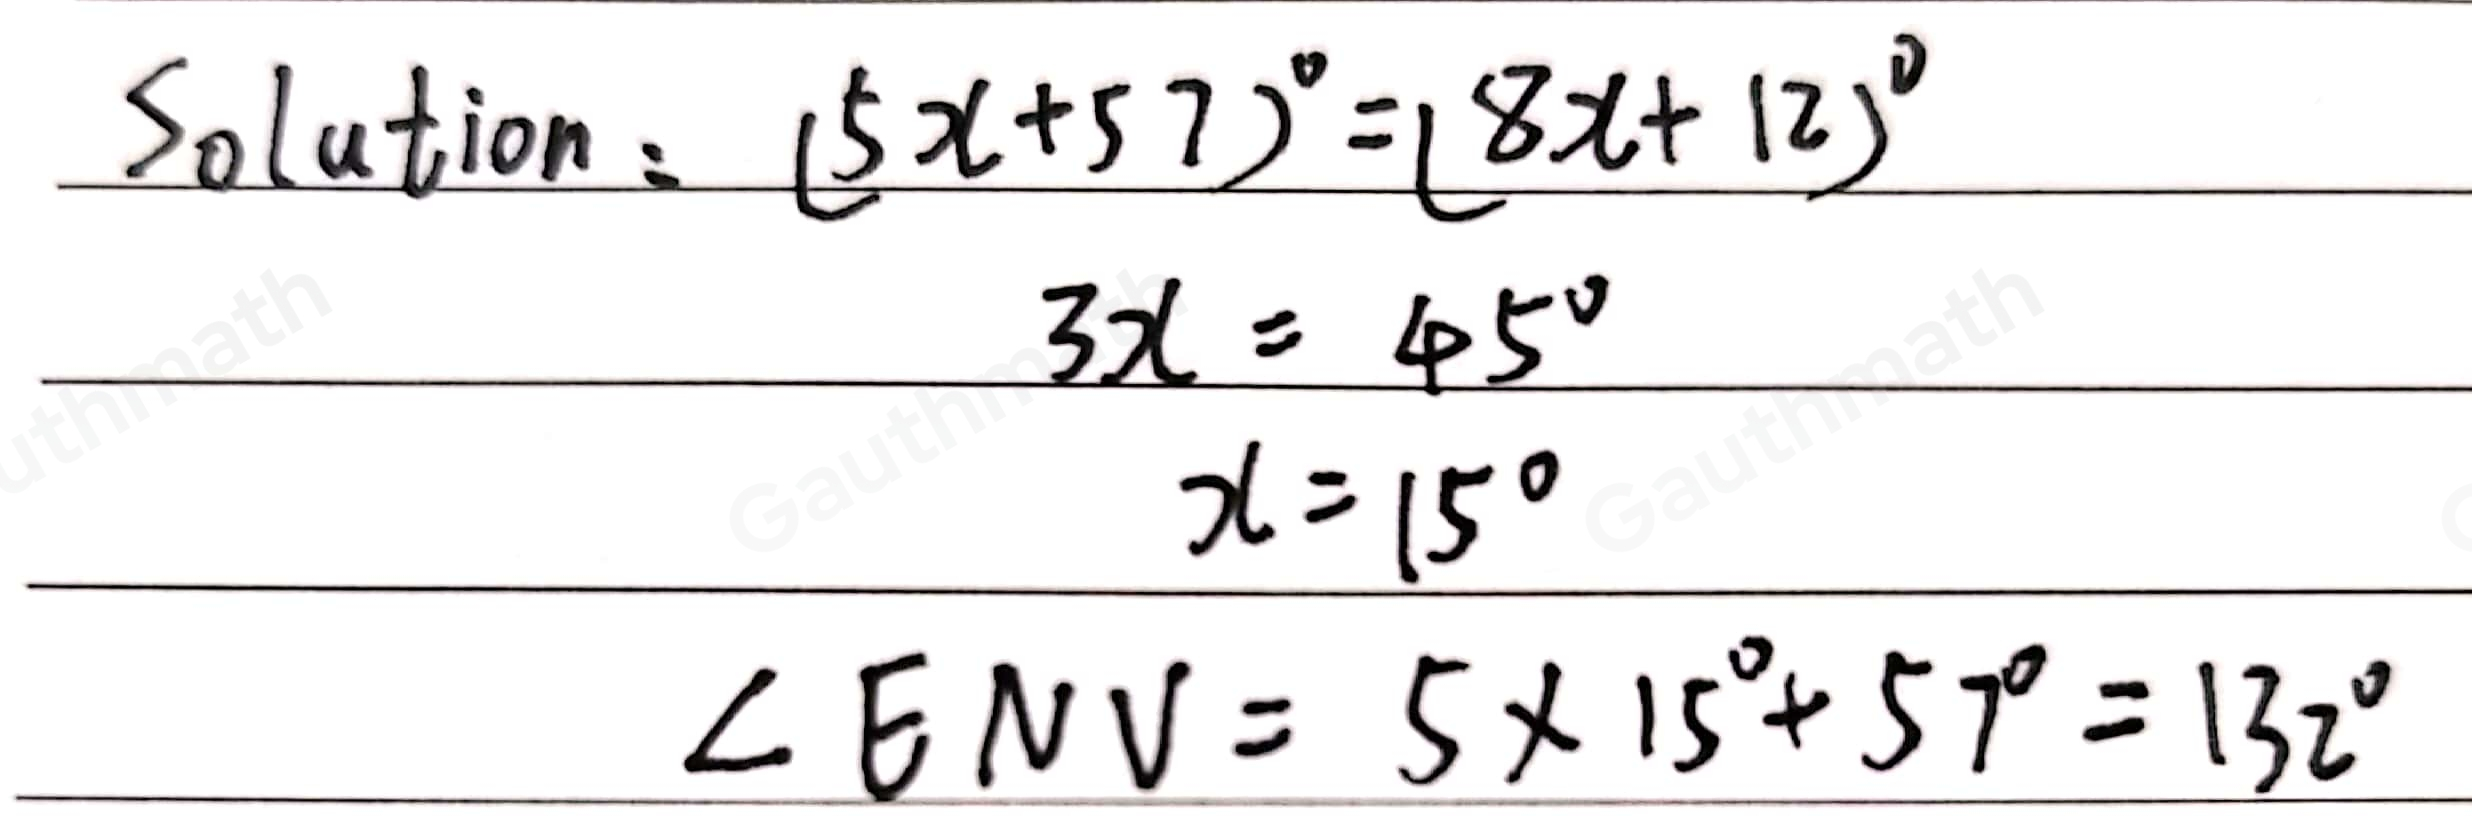 Solution: (5x+57)°=(8x+12)°
3x = 45°
x=15°
∠ENV = 5×15°+57°=132°
Gauthmath
Gauthmath